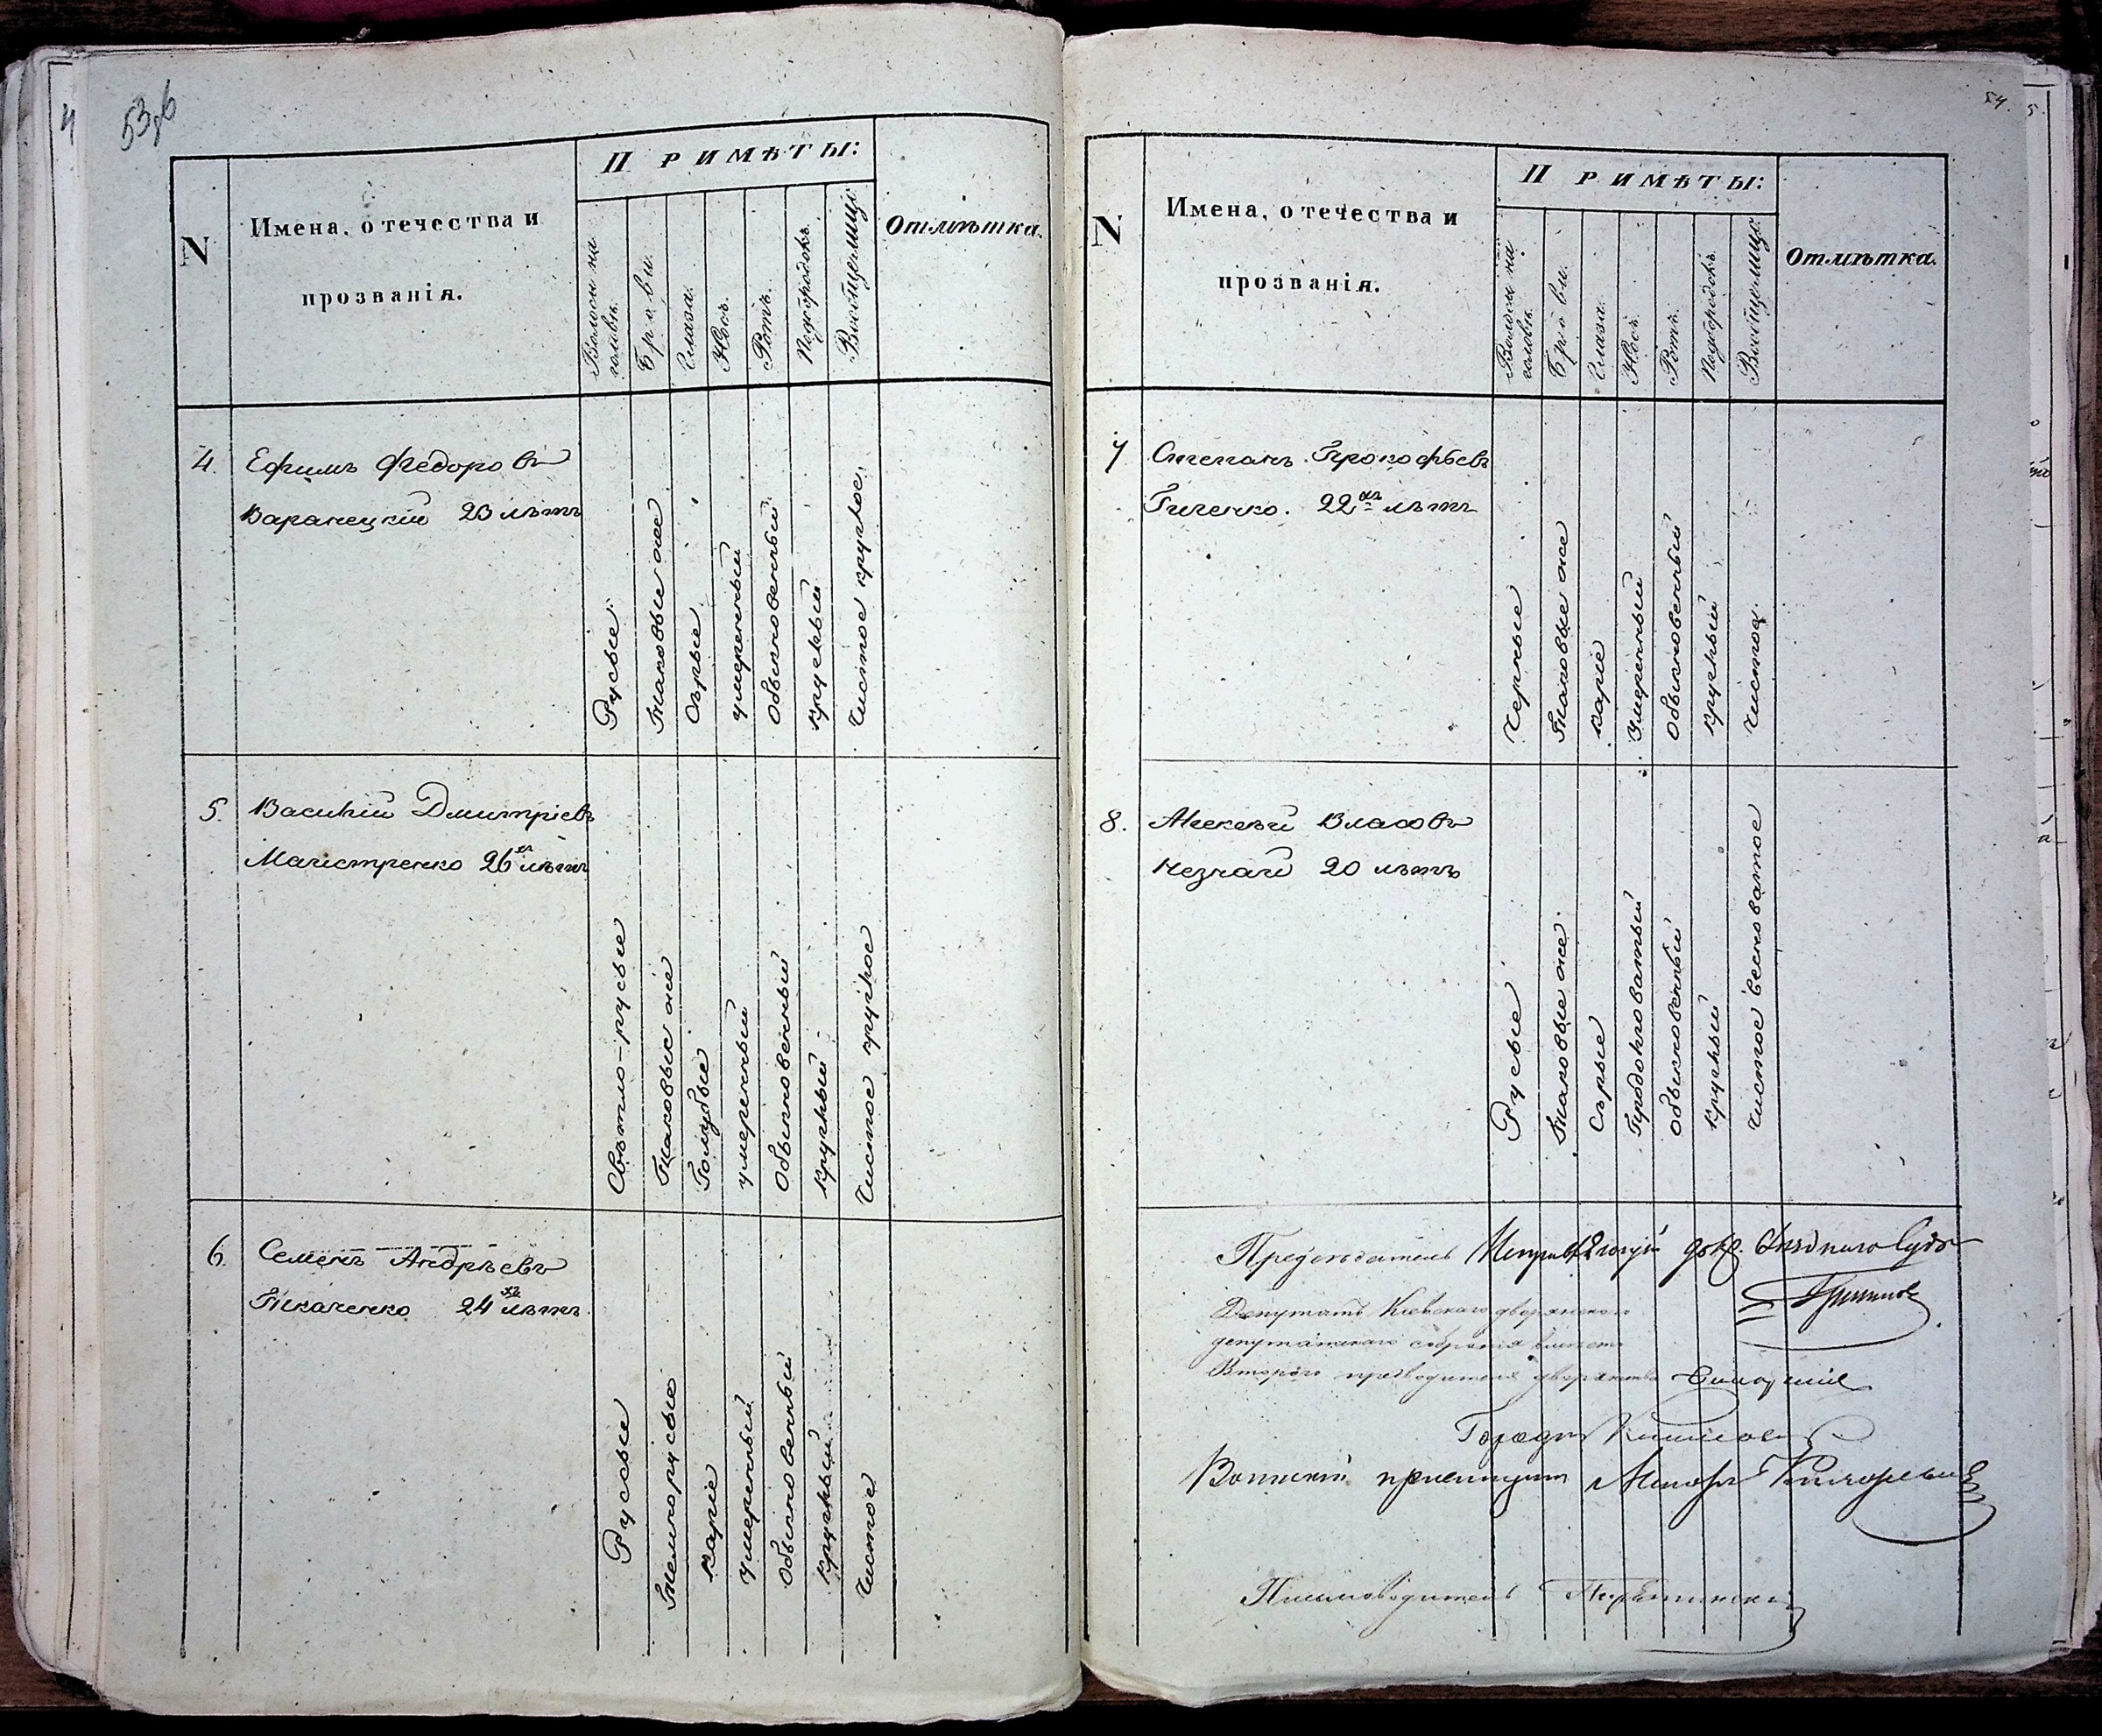 53об
N
Имена, отечества и
прозванія.
Примѣты:
Волосы на
головѣ.
Брови.
Глаза.
Носъ.
Ротъ.
Подбородокъ.
Вообще лицо.
Отмѣтка.
4. Ефимъ Ѳедоровъ
Варанецкій 23 лѣтъ
Русые.
Таковые же
Сѣрые
умеренный
Обыкновенный
круглый
Чистое круглое.
5. Василій Дмитріевъ
Магістренко 26 лѣтъ
Свѣтло-русые
Таковые же
Голубые
умеренный
Обыкновенный
круглый
Чистое круглое
6. Семенъ Андрѣевъ
Ткаченко 24 хъ лѣтъ
Русые
Темнорусые
Каріе
Умеренный
Обыкновенный
круглый
Чистое
54.
N
Имена, отечества и
прозванія.
Примѣты:
Волосы на
головѣ.
Брови.
Глаза.
Носъ.
Ротъ.
Подбородокъ.
Вообще лицо.
Отмѣтка.
7 Степанъ Прокофьевъ
22 хъ лѣтъ
Черные
Таковые же
Каріе
Умеренный
Обыкновенный
круглый
Чистое
8. Алексѣй Власовъ
Незнай 20 лѣтъ
Русые
Таковые же.
Сѣрые
Продолговатый
Обыкновенный
круглый
Чистое весноватое
Предсѣдатель
Депутатъ Кіевскаго дворянскаго
депутатскаго собранія вмѣсто
предводителя дворянства
Воинскій пріемщикъ Маіоръ
Письмоводитель